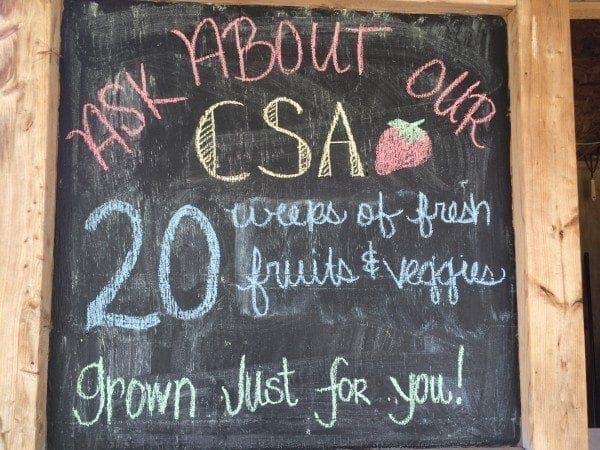 ASK ABOUT OUR
CSA
20 weeks of fresh
fruits & veggies
grown Just for you!